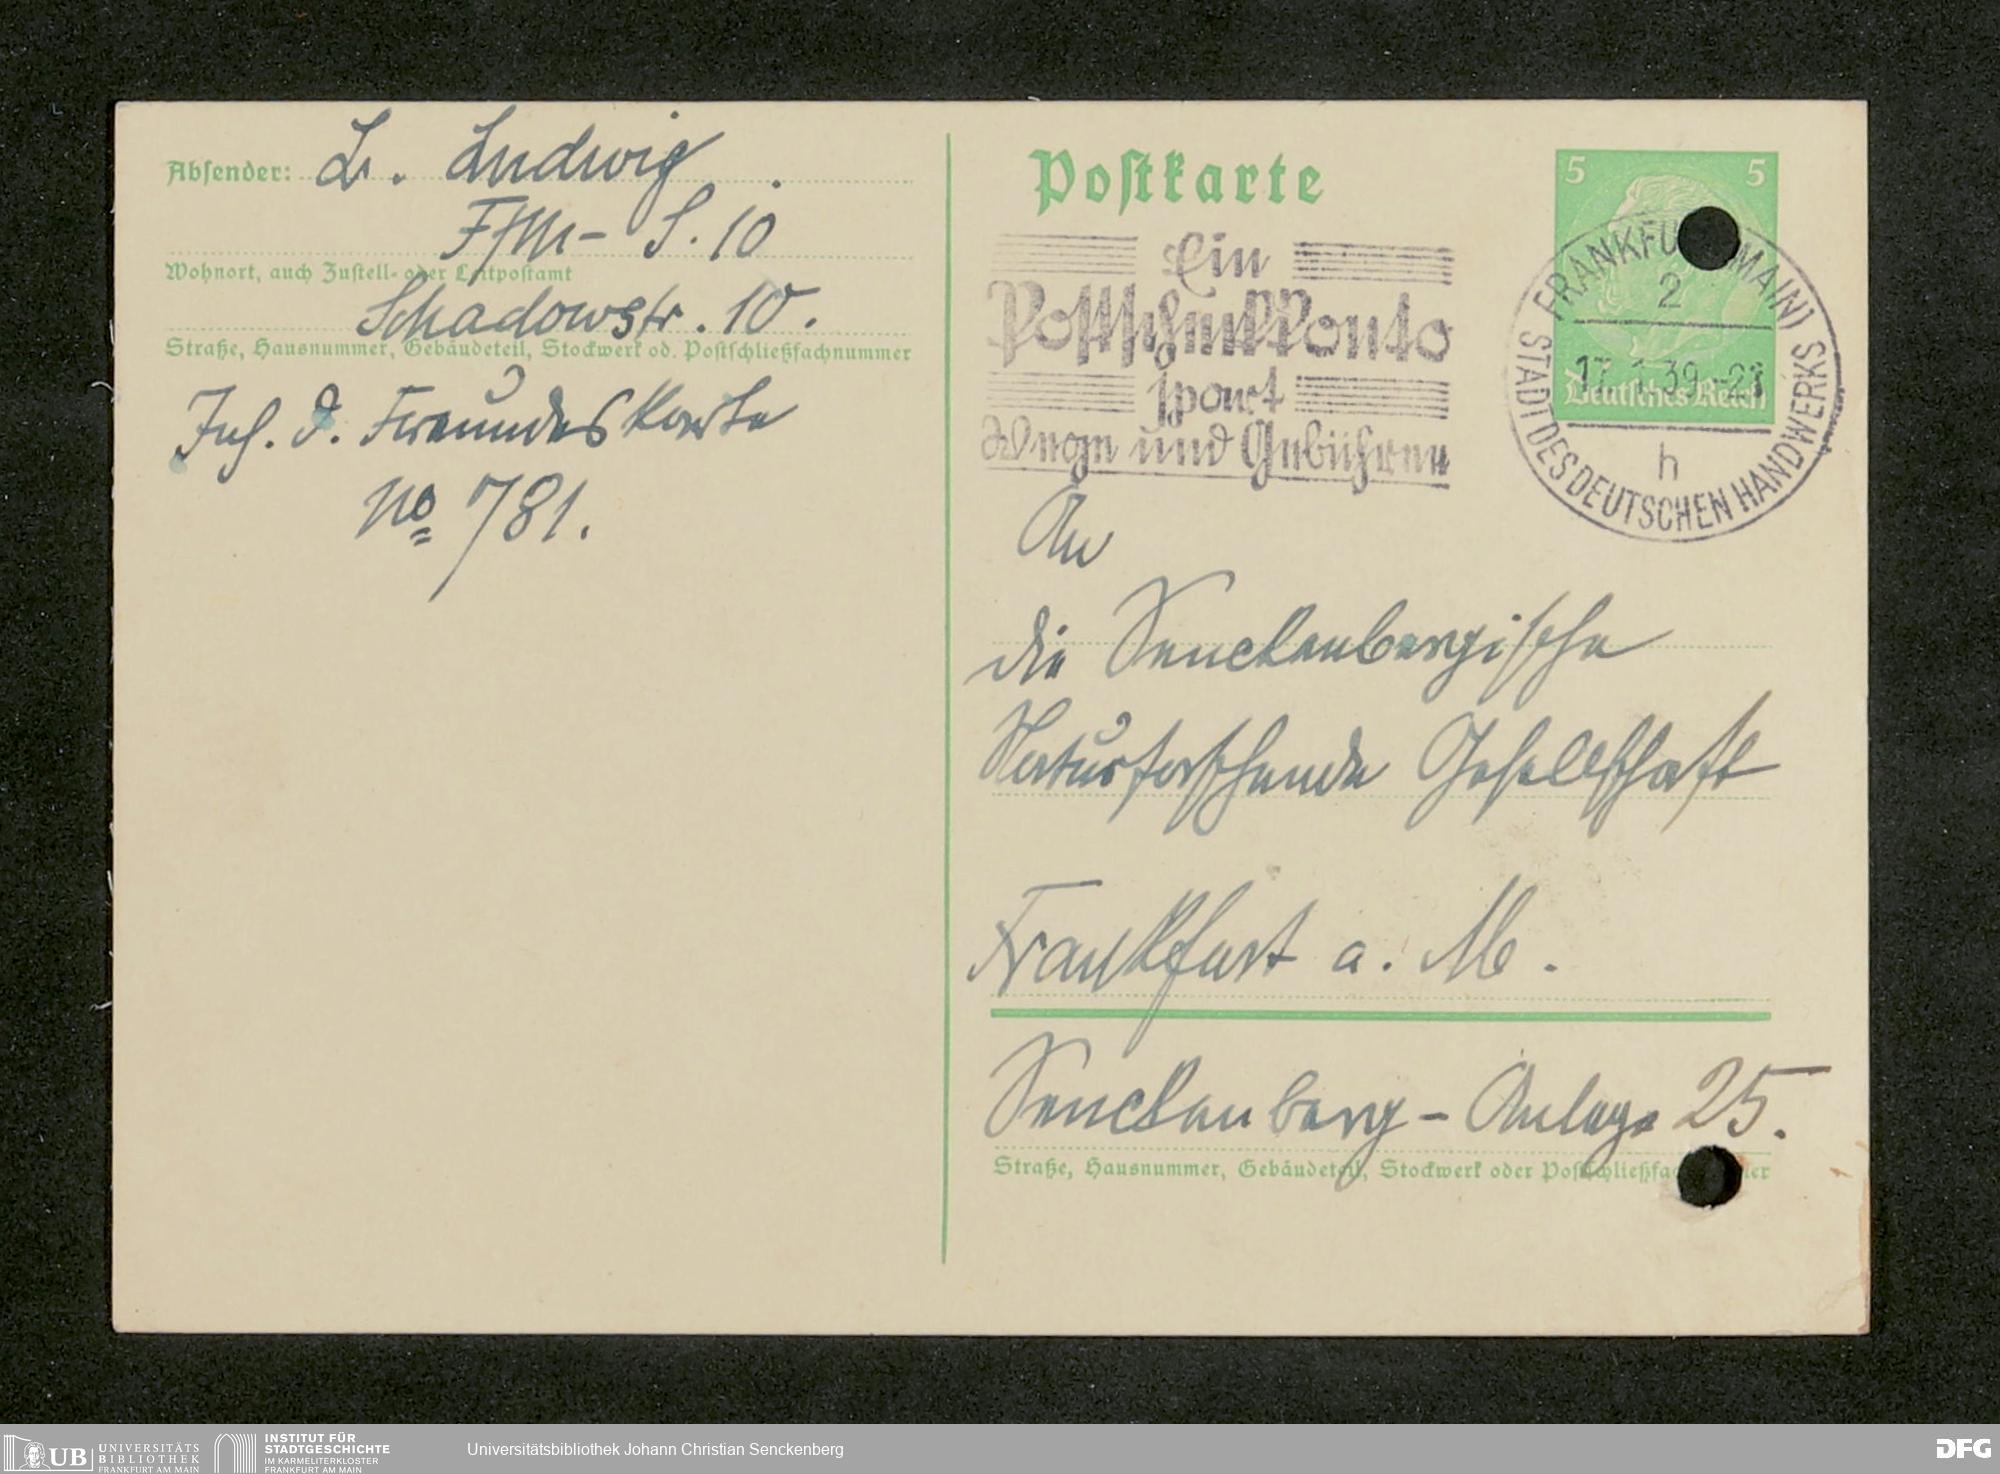 Absender: Lr. Ludwig
Ffm- S. 10
Wohnort, auch Zustell- oder Leitpostamt
Schadowstr. 10.
Straße, Hausnummer, Gebäudeteil, Stockwerk od. Postschließfachnummer
Inh. d. Freundeskarte
No 781.
Postkarte
5 5
Deutsches Reich
FRANKFU MAIN)
2
17.1.39.-21
h
STADT DES DEUTSCHEN HANDWERKS
Ein
Postscheckkonto
spart
Wege und Gebühren
An
die Senckenbergische
Naturforschende Gesellschaft
Frankfurt a. M.
Senckenberg-Anlage 25.
Straße, Hausnummer, Gebäudeteil, Stockwerk oder Postschließfa er
UB UNIVERSITÄTS
BIBLIOTHEK
FRANKFURT AM MAIN
INSTITUT FÜR
STADTGESCHICHTE
IM KARMELITERKLOSTER
FRANKFURT AM MAIN
Universitätsbibliothek Johann Christian Senckenberg
DFG